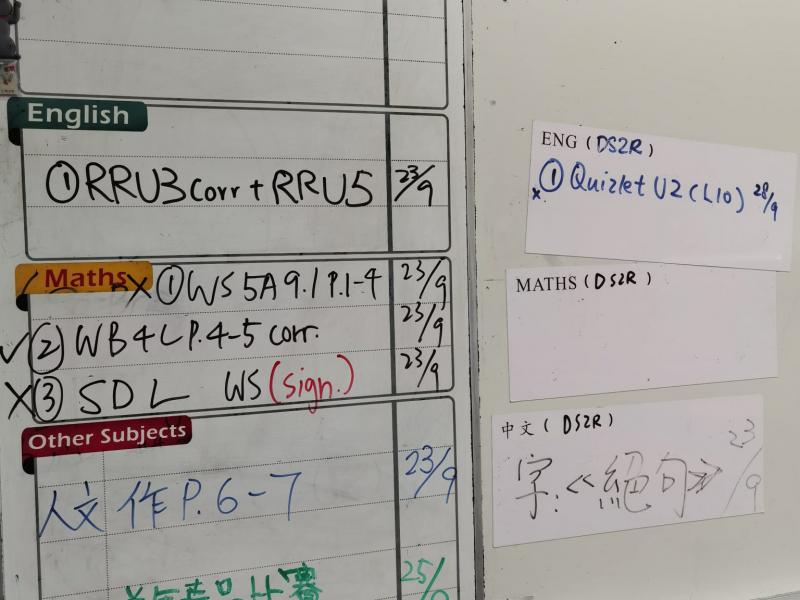 English
① RRU3 corr + RRU5 23/9
Maths × ① WS 5A 9.1 P.1-4 23/9
✓ ② WB 4L P.4-5 corr. 23/9
× ③ SDL WS (sign.) 23/9
Other Subjects
人文 作 P.6-7 23/9
25/9
ENG (DS2R)
× ① Quizlet U2 (L10) 28/9
MATHS (DS2R)
中文 (DS2R)
字:《絕句》 23/9